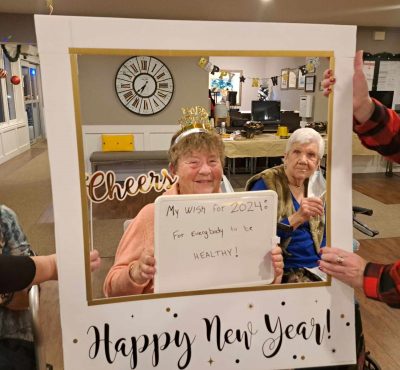 Cheers
My Wish for 2024:
For Everybody to be
HEALTHY!
Happy New Year!